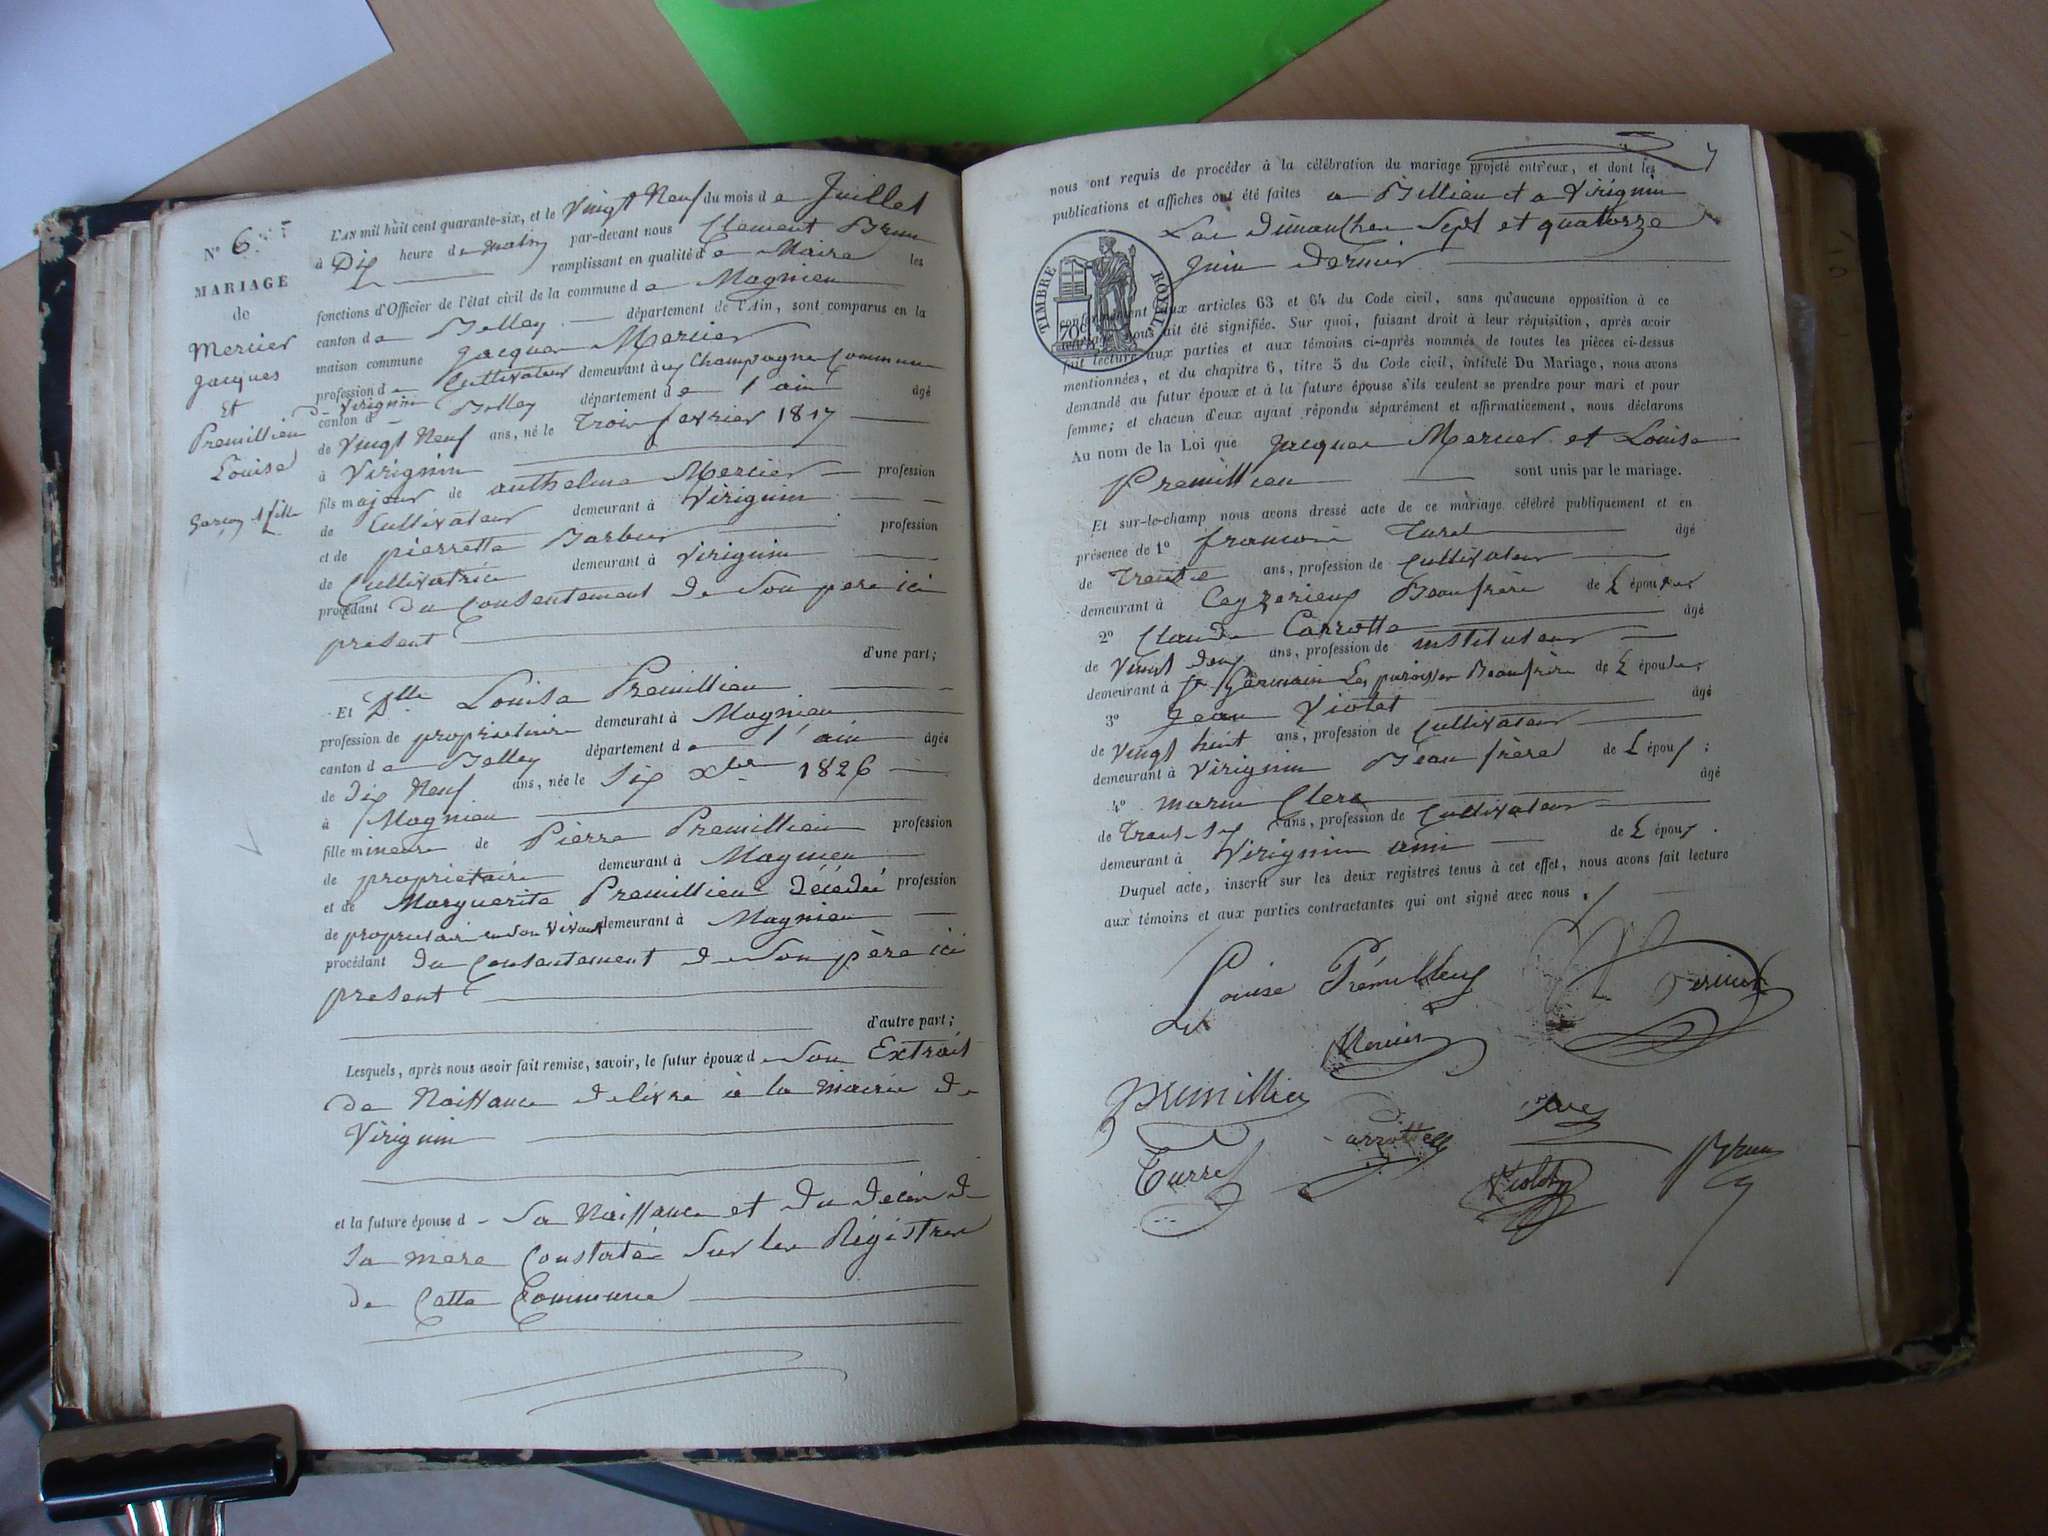 N° 6
MARIAGE
de
Mercier
Jacques
et
Premillieu
Louise
garçon et fille
L'AN mil huit cent quarante-six, et le Vingt Neuf du mois d e Juillet
à Dix heure de matin par-devant nous Clement Brun
remplissant en qualité d e Maire les
fonctions d'Officier de l'état civil de la commune d e Magnieu
canton d e Belley département de l'Ain, sont comparus en la
maison commune Jacques Mercier
profession d e Cultivateur demeurant à Champagne Commune
de Virignin
canton d Belley département d e l'ain âgé
de Vingt Neuf ans, né le Trois fevrier 1817
à Virignin
fils majeur de anthelme Mercier profession
de Cultivateur demeurant à Virignin
et de pierrette Barbier profession
de Cultivatrice demeurant à Virignin
procédant du Consentement de Son pere ici
present
d'une part;
Et Dlle Louise Premillieu
profession de proprietaire demeurant à Magnieu
canton d e Belley département d e l'ain âgée
de Dix Neuf ans, née le Six Xbre 1826
à Magnieu
fille mineure de Pierre Premillieu profession
de proprietaire demeurant à Magnieu
et de Marguerite Premillieu décédée profession
de proprietaire en son vivant demeurant à Magnieu
procédant du Consentement de Son père ici
present
d'autre part;
Lesquels, après nous avoir fait remise, savoir, le futur époux d e Son Extrait
de Naissance delivré à la mairie de
Virignin
et la future épouse d e Sa Naissance et du décès de
Sa mère Constatée Sur les Régistres
de Cette Commune
7
nous ont requis de procéder à la célébration du mariage projeté entr'eux, et dont les
publications et affiches ont été faites a Billieu et a Virignin
Les dimanches Sept et quatorze
Juin dernier
TIMBRE ROYAL
70c
conformément aux articles 63 et 64 du Code civil, sans qu'aucune opposition à ce
mariage nous ait été signifiée. Sur quoi, faisant droit à leur réquisition, après avoir
fait lecture aux parties et aux témoins ci-après nommés de toutes les pièces ci-dessus
mentionnées, et du chapitre 6, titre 5 du Code civil, intitulé Du Mariage, nous avons
demandé au futur époux et à la future épouse s'ils veulent se prendre pour mari et pour
femme; et chacun d'eux ayant répondu séparément et affirmaticement, nous déclarons
Au nom de la Loi que Jacques Mercier et Louise
Premillieu sont unis par le mariage.
Et sur-le-champ nous avons dressé acte de ce mariage célébré publiquement et en
présence de 1° francois Turel âgé
de Trente ans, profession de Cultivateur
demeurant à Ceyzerieux Beaufrère de L'épouse
2° Claude Carrotte âgé
de Vingt deux ans, profession de instituteur
demeurant à St Germain Les paroisses Beaufrère de L'épouse
3° Jean Violet âgé
de Vingt huit ans, profession de Cultivateur
demeurant à Virignin Beau frère de L'époux;
4° marin Clerc âgé
de Trent Six ans, profession de Cultivateur
demeurant à Virignin ami de L'époux.
Duquel acte, inscrit sur les deux registres tenus à cet effet, nous avons fait lecture
aux témoins et aux parties contractantes qui ont signé avec nous.
Louise Prémillieux
Mercier
premillieu
Carrotte
Turrel
Violet
Brun